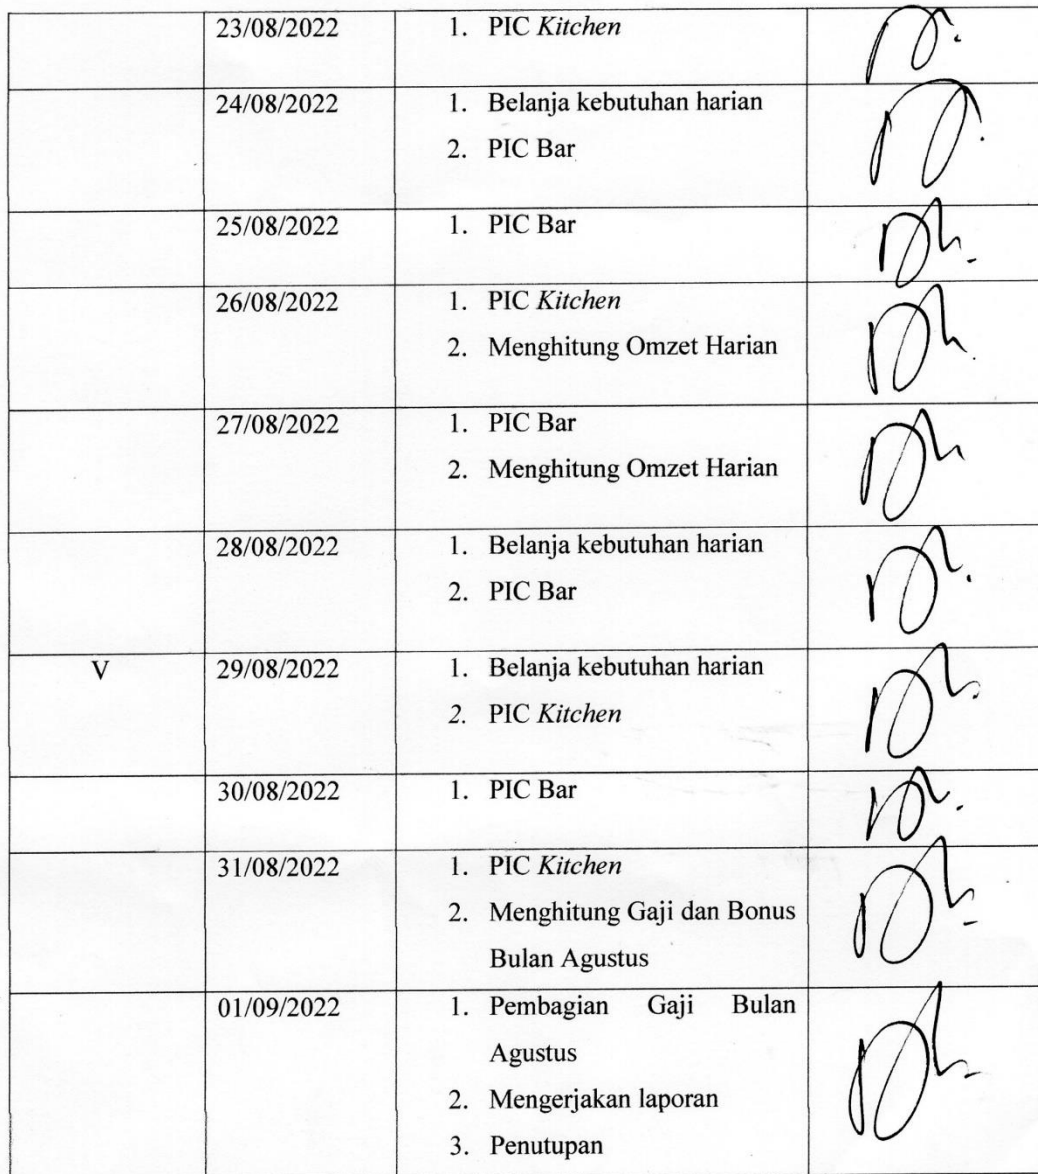 23/08/2022 1. PIC Kitchen
24/08/2022 1. Belanja kebutuhan harian
2. PIC Bar
25/08/2022 1. PIC Bar
26/08/2022 1. PIC Kitchen
2. Menghitung Omzet Harian
27/08/2022 1. PIC Bar
2. Menghitung Omzet Harian
28/08/2022 1. Belanja kebutuhan harian
2. PIC Bar
V 29/08/2022 1. Belanja kebutuhan harian
2. PIC Kitchen
30/08/2022 1. PIC Bar
31/08/2022 1. PIC Kitchen
2. Menghitung Gaji dan Bonus
Bulan Agustus
01/09/2022 1. Pembagian Gaji Bulan
Agustus
2. Mengerjakan laporan
3. Penutupan